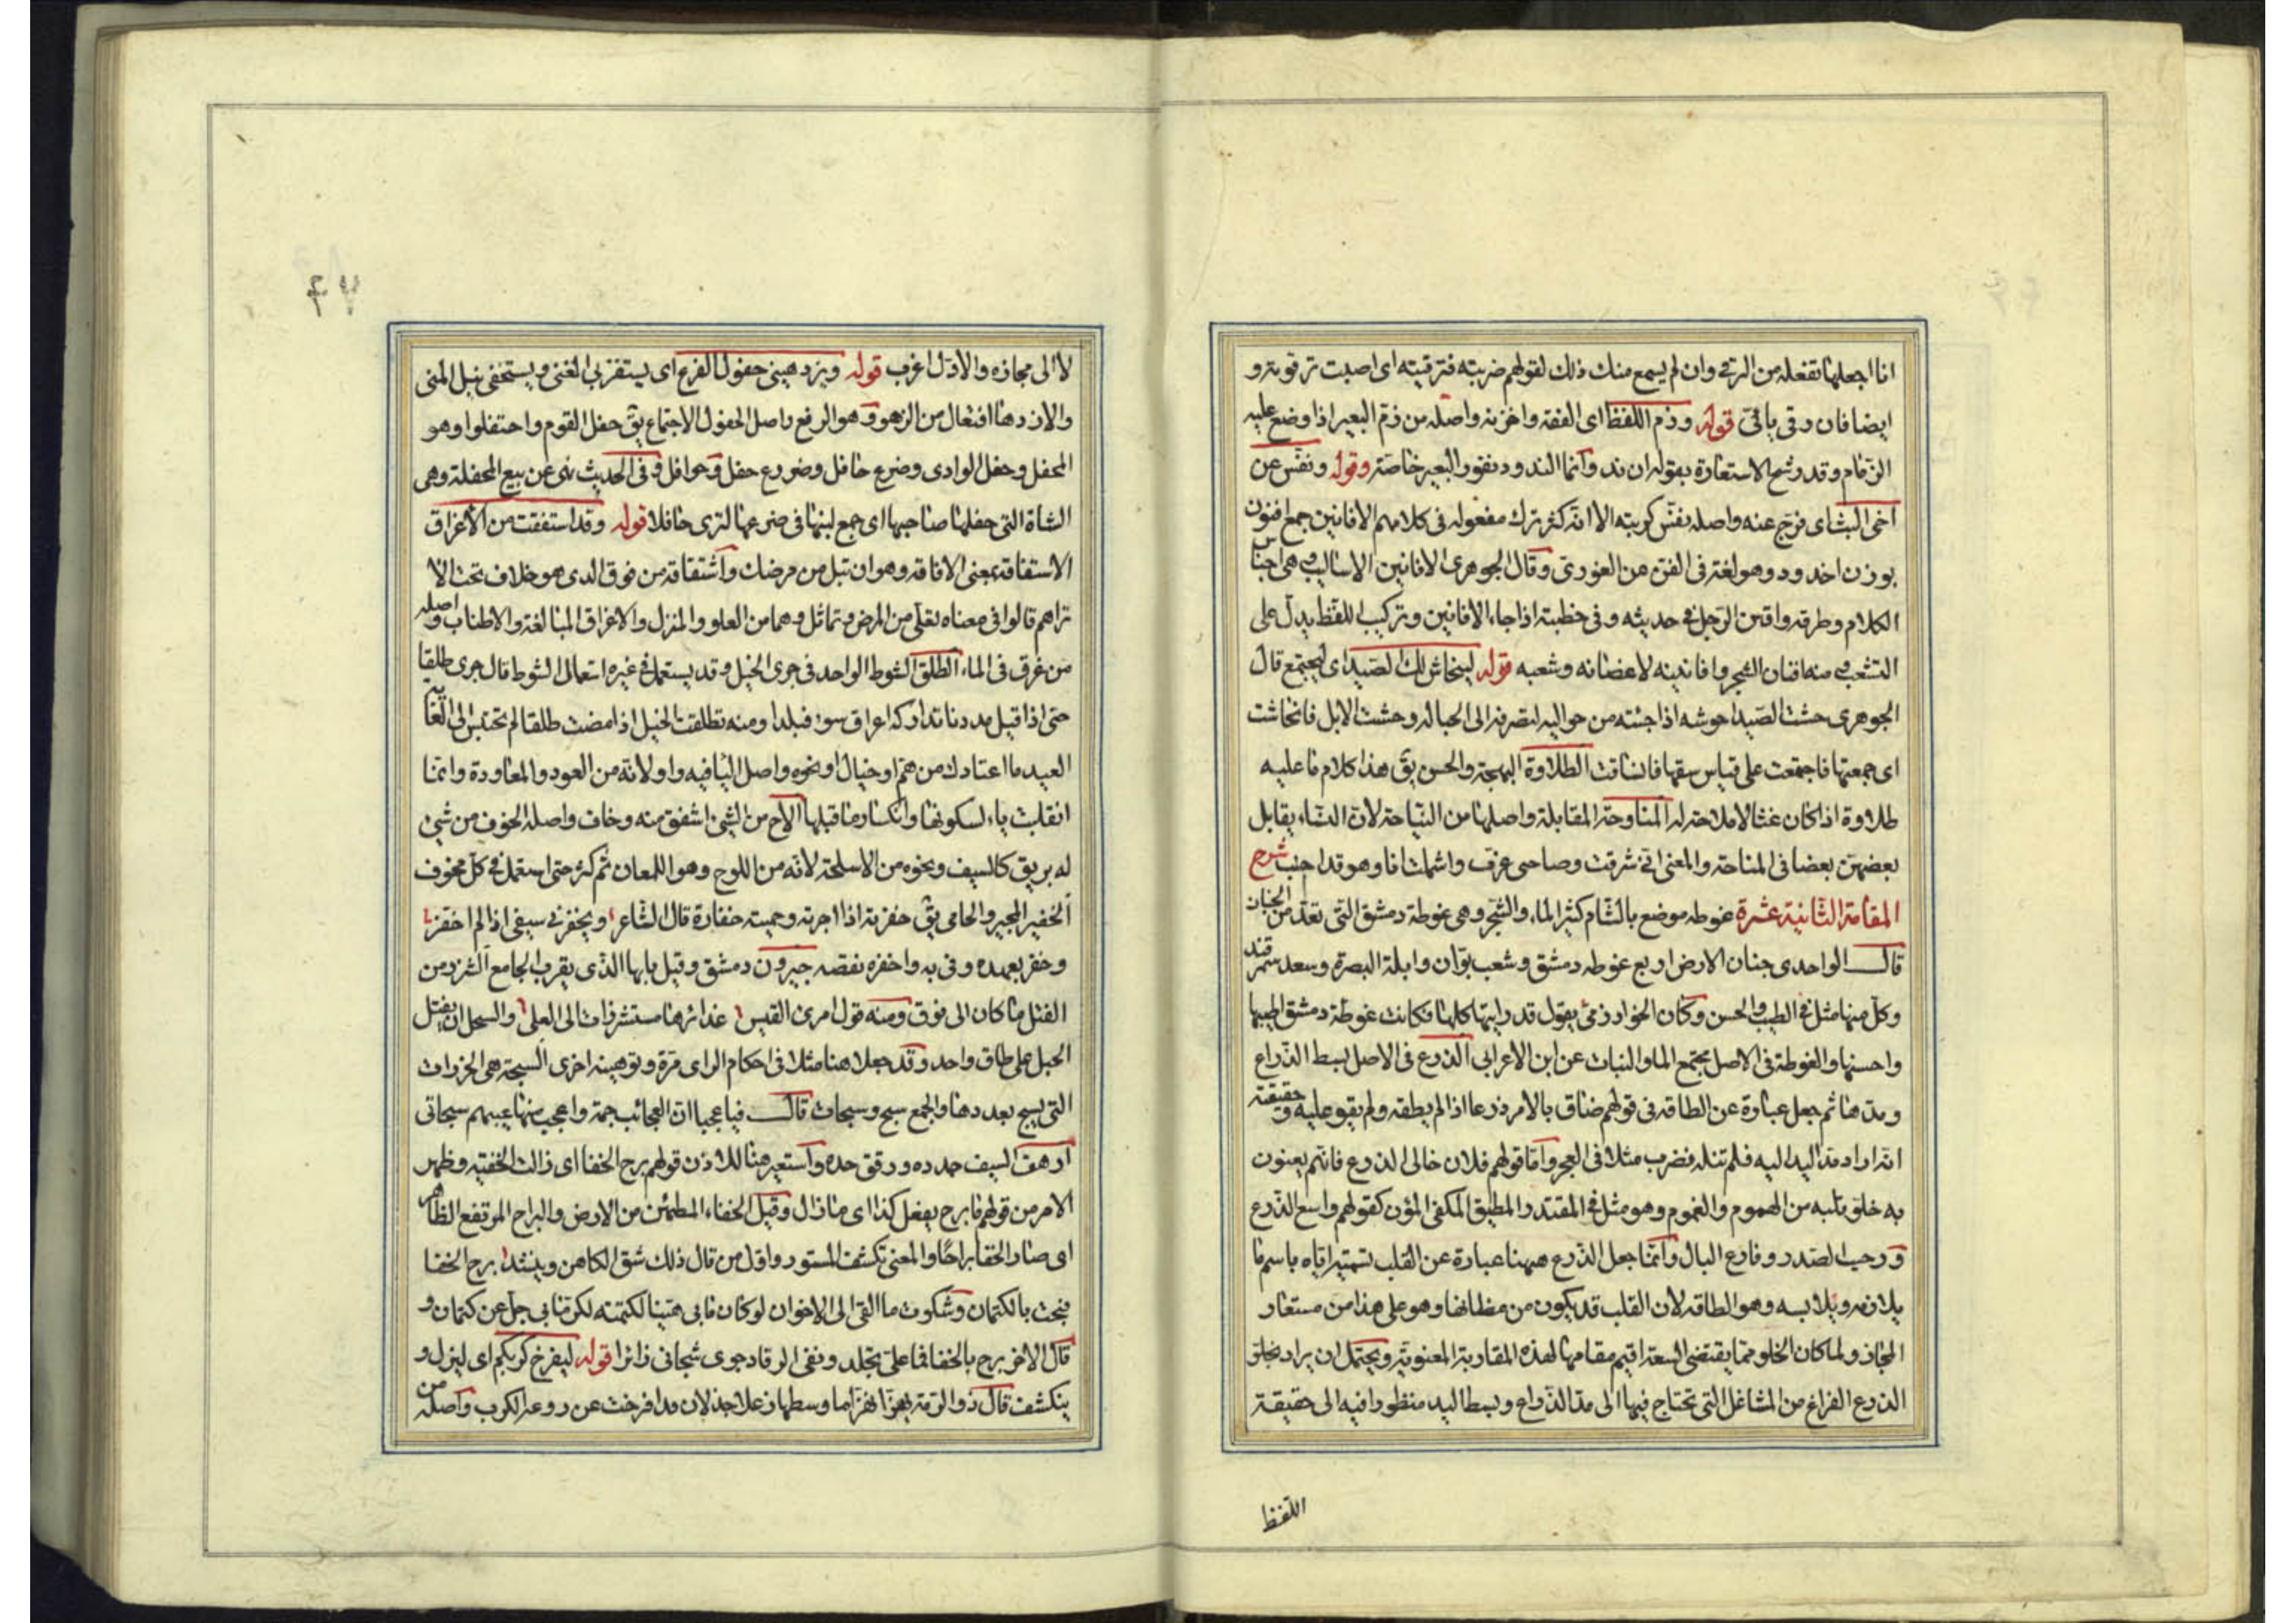 انا اجعلها تفعله من الرقى وان لم يسمع منك ذلك لقولهم ضربته فترقيته اى اصبت ترقوته و
ايضا فان وقى باقى قوله وذم اللفظ اى الفقه واخزنه واصله من زم البعير اذا وضع عليه
الزمام وقد رشح الاستعارة بقوله ان ند وانما الندود نفور البعير خاصة وقوله ونفس عن
اخى البث اى فرج عنه واصله نفس كربته الا انه كثر ترك مفعوله فى كلامهم الافانين جمع افنون
بوزن اخدود وهو لغة فى الفن عن الغورى وقال الجوهرى الافانين الاساليب وهى اجناس
الكلام وطرقه وافتن الرجل فى حديثه وفى خطبته اذا جاء بالافانين وتركيب اللفظ يدل على
التشعب ومنه افنان الشجر وافانينه لاغصانه وشعبه قوله لينحاش لك الصيد اى ليجتمع قال
الجوهرى حشت الصيد احوشه اذا جئته من حواليه لتصرفه الى الحباله وحشت الابل فانحاشت
اى جمعتها فاجتمعت على قياس سقها فانساقت الطلاوة البهجة والحسن يق هذا كلام ما عليه
طلاوة اذا كان غثا لا ملاحة له المناوحة المقابلة واصلها من النياحة لان النساء يقابل
بعضهن بعضا فى المناحة والمعنى انى شرقت وصاحبى غرب واشملت انا وهو قد اجنب شرح
المقامة الثانية عشرة غوطه موضع بالشام كثير الماء والشجر وهى غوطة دمشق التى تعد من الجنان
قال الواحدى جنان الارض اربع غوطه دمشق وشعب بوان وابلة البصرة وسعد سمرقند
وكل منها مثل فى الطيب والحسن وكان الخوارزمى يقول قد رايتها كلها فكانت غوطة دمشق اطيبها
واحسنها والغوطة فى الاصل مجتمع الماء والنبات عن ابن الاعرابى الذرع فى الاصل بسط الذراع
ومدها ثم جعل عبارة عن الطاقه فى قولهم ضاق بالامر ذرعا اذا لم يطقه ولم يقو عليه وحقيقته
انه اراد مد اليد اليه فلم تنله فضرب مثلا فى العجز واما قولهم فلان خالى الذرع فانهم يعنون
به خلو قلبه من الهموم والغموم وهو مثل فى المقتدر المطيق المكفى المؤن كقولهم واسع الذرع
ورحيب الصدر وفارغ البال وانما جعل الذرع ههنا عبارة عن القلب تسمية اياه باسم ما
يلازمه ويلابسه وهو الطاقه لان القلب قد يكون من مظانها وهو على هذا من مستعار
المجاز ولما كان الخلو مما يقتضى السعة اقيم مقامها لهذه المقاربة المعنوية ويحتمل ان يراد بخلو
الذرع الفراغ من المشاغل التى تحتاج فيها الى مد الذراع وبسط اليد منظورا فيه الى حقيقة
اللفظ
٦٧
لا الى مجازه والاول اغرب قوله ويزدهينى حفول الفرع اى يستفزنى الغنى ويستخفى نيل المنى
والازدهاء افتعال من الزهو وهو الرفع واصل الحفول الاجتماع يق حفل القوم واحتفلوا وهو
المحفل وحفل الوادى وضرع حافل وضروع حفل وحوافل وفى الحديث نهى عن بيع المحفلة وهى
الشاة التى حفلها صاحبها اى جمع لبنها فى ضرعها لترى حافلا قوله وقد استفقت من الاغراق
الاستفاقة بمعنى الافاقه وهو ان تبل من مرضك واشتقاقه من فوق الذى هو خلاف تحت الا
تراهم قالوا فى معناه تعلى من المرض وتماثل وهما من العلو والمنزل والاغراق المبالغة والاطناب واصله
من غرق فى الماء الطلق الشوط الواحد فى جرى الخيل وقد يستعمل فى غيره استعمال الشوط قال جرى طلقا
حتى اذا قيل مددنا تداركه اعراق سوء فبلدا ومنه تطلقت الخيل اذا مضت طلقا لم تحتبس الى الغاية
العيد ما اعتادك من هم او خيال او نحوه واصل الياء فيه واو لانه من العود والمعاودة وانما
انقلبت ياء لسكونها وانكسار ما قبلها الاح من الشئ اشفق منه وخاف واصله الخوف من شئ
له بريق كالسيف ونحوه من الاسلحة لانه من اللوح وهو اللمعان ثم كثر حتى استعمل فى كل مخوف
الخفير المجير والحامى يق خفرته اذا اجرته وحميته خفارة قال الشاعر ويخفرنى سيفى اذا لم اخفر
وخفر بعهده وفى به واخفره نقضه جيرون دمشق وقيل بابها الذى يقرب الجامع الشزر من
الفتل ما كان الى فوق ومنه قول امرئ القيس غدائرها مستشزرات الى العلى والسحل ان يفتل
الحبل على طاق واحد وقد جعلا هنا مثلا فى احكام الراى مرة وتوهينه اخرى السبحة هى الخرزات
التى يسبح بعددها والجمع سبح وسبحات قال فيا عجبا ان العجائب جمة واعجب منها عيبهم سبحاتى
ارهف السيف حدده ورقق حده واستعير هنا للاذن قولهم برح الخفا اى زالت الخفية وظهر
الامر من قولهم ما برح يفعل كذا اى ما زال وقيل الخفاء المطمئن من الارض والبراح المرتفع الظاهر
اى صار الخفا براحا والمعنى تكشف المستور واول من قال ذلك شق الكاهن وينشد برح الخفا
فبحت بالكتمان وشكوت ما القى الى الاخوان لو كان ما بى هينا لكتمته لكن ما بى جل عن كتمان و
قال الاخر برح بالخفا فما على تجلد ونفى الرقاد جوى شجانى زائرا قوله ليفرخ كربكم اى ليزل و
ينكشف قال ذو الرمة وسطها زعلا جذلان قد افرخت عن روعه الكرب واصله من